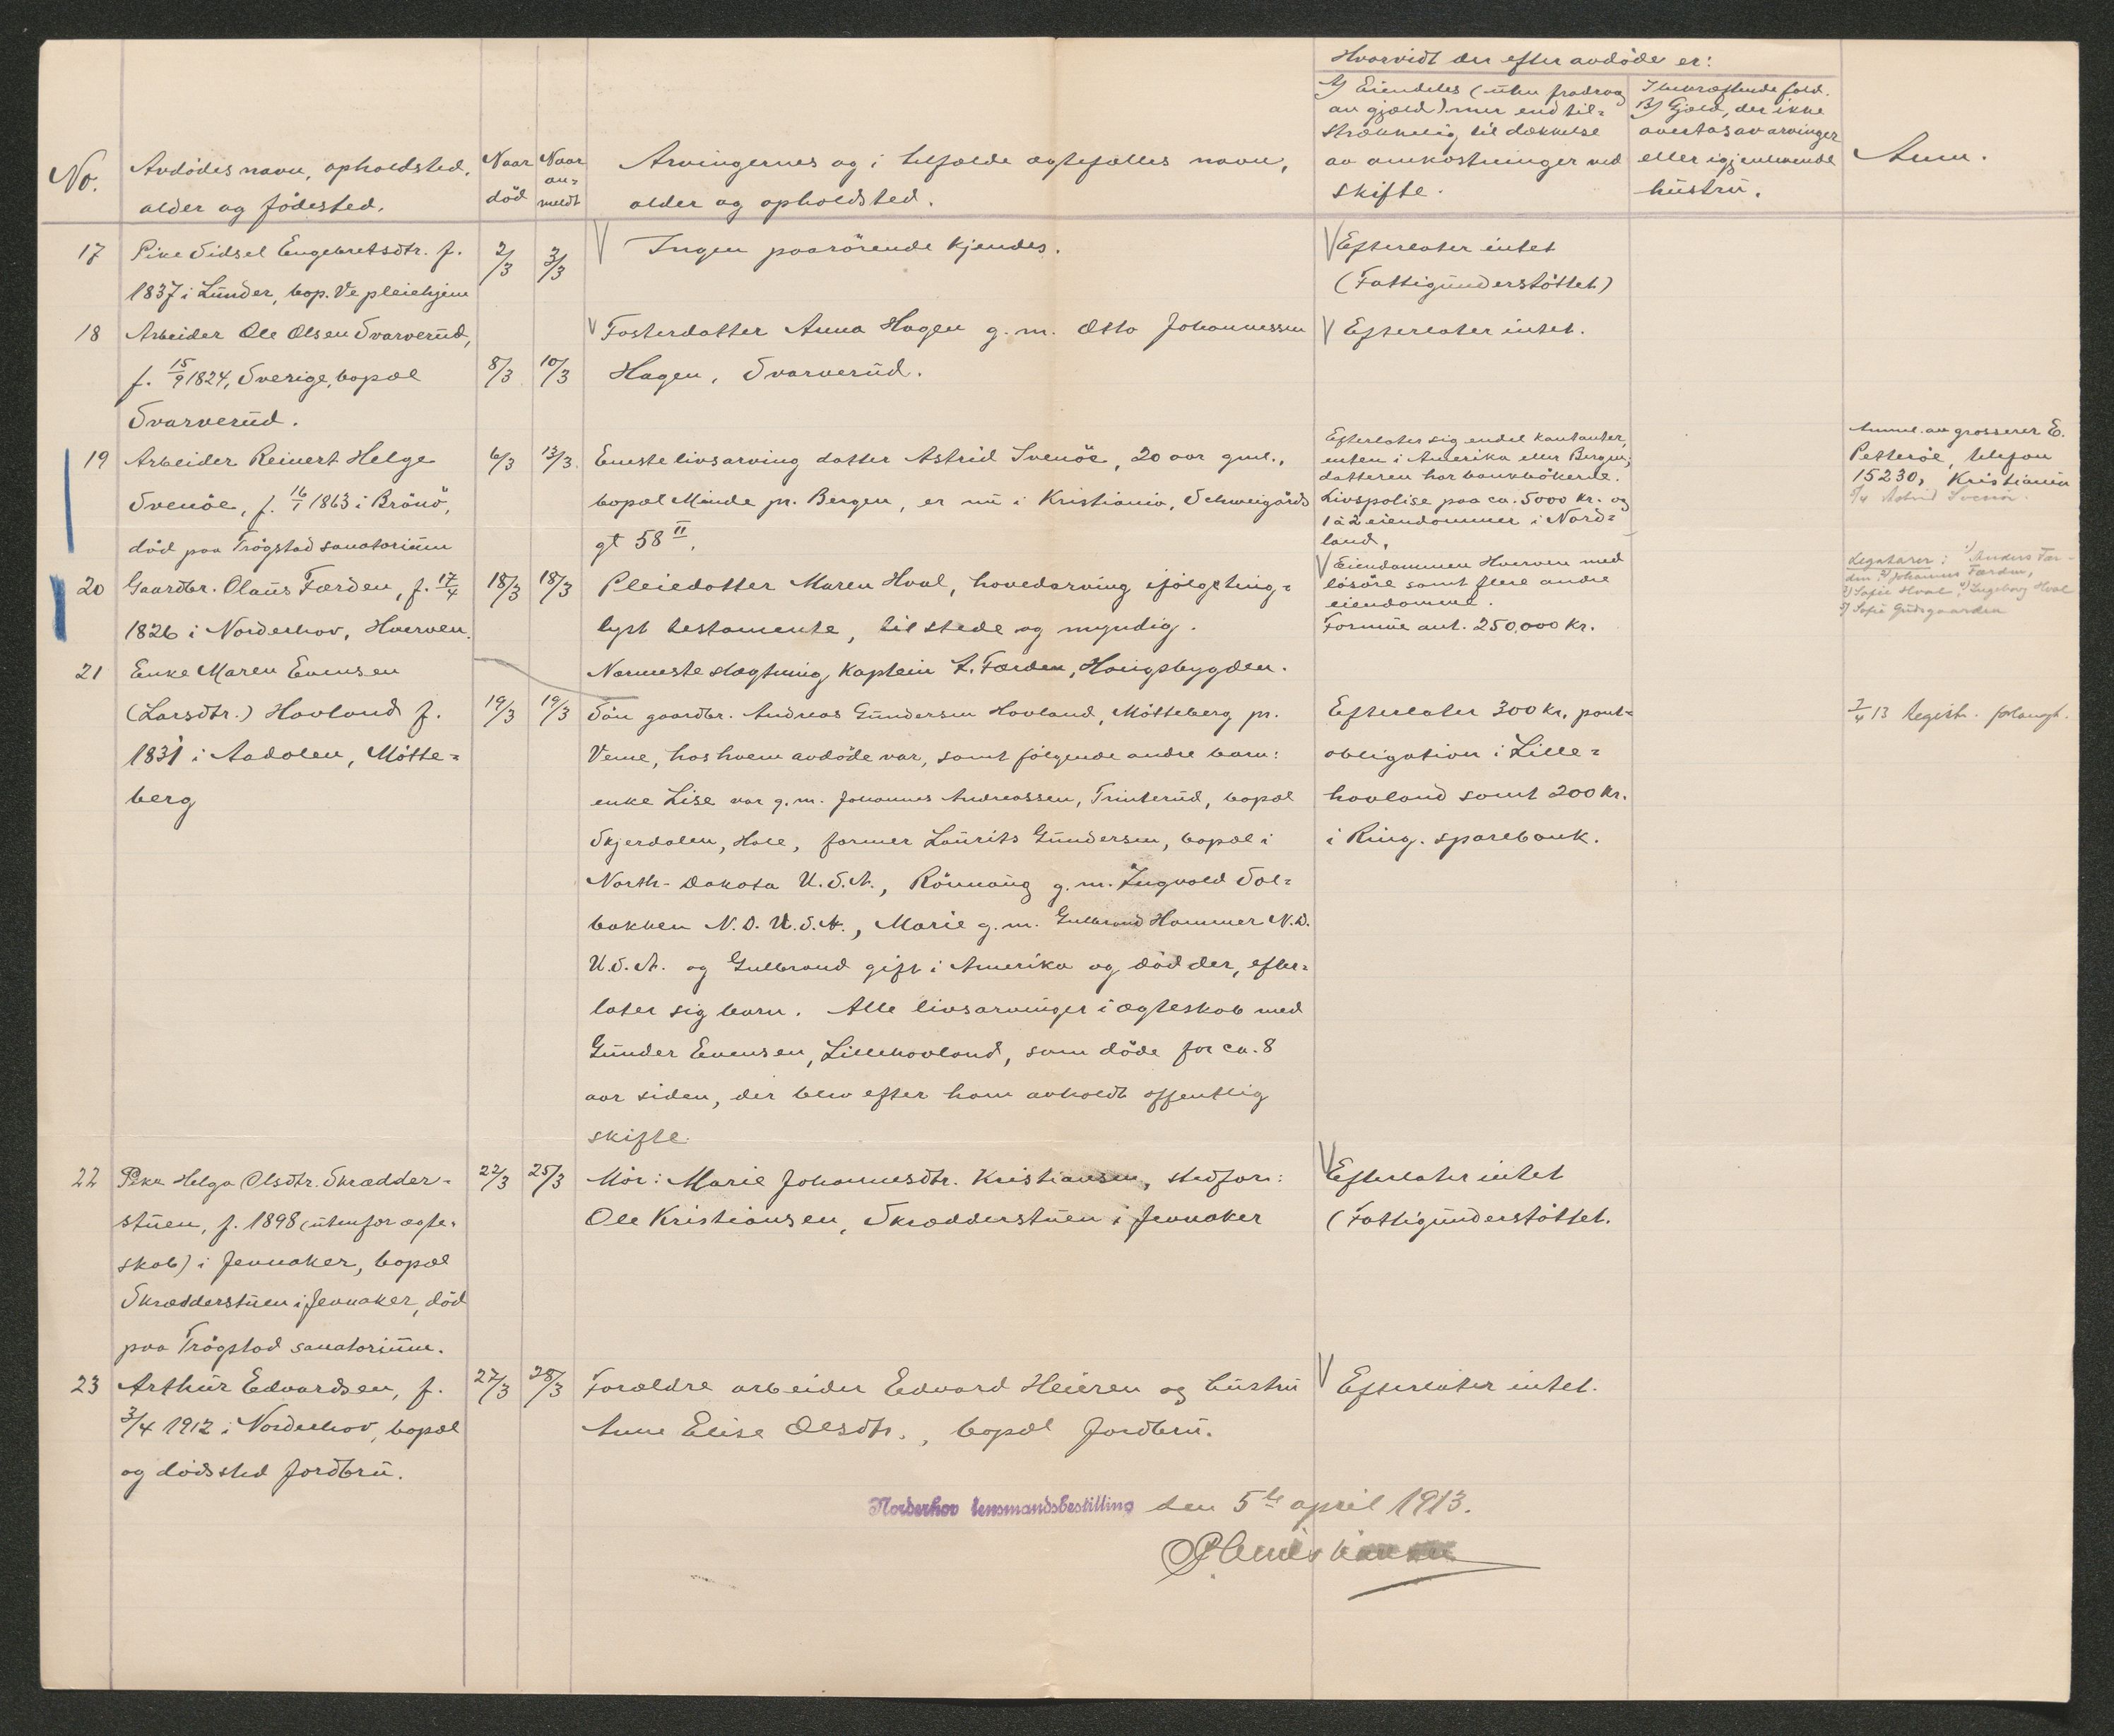 Hvorvidt der efter avdöde er:
No.
Avdödes navn, opholdsted,
alder og födested.
Naar
död
Naar
an=
meldt
Arvingernes og i tilfælde ægtefælles navn,
alder og opholdsted.
A) Eiendeles (uten fradrag
av gjæld) mer end til=
strækkelig til dækkelse
av omkostninger ved
skifte.
I bekræftende fald.
B) Gjæld, der ikke
overtas av arvinger
eller igjenlevende
hustru.
Anm.
17
Pike Sidsel Engebretsdtr. f.
1837 i Lunder, bop. Ve pleiehjem
2/3
3/3
Ingen paarörende kjendes.
Efterlater intet
(Fattigunderstöttet)
18
Arbeider Ole Olsen Svarverud,
f. 15/9 1824, Sverige, bopæl
Svarverud.
8/3
10/3
Fosterdatter Anna Hagen g. m. Otto Johannessen
Hagen, Svarverud.
Efterlater intet.
19
Arbeider Reinert Helge
Svenöe, f. 16/1 1863 i Brönö,
död paa Trögstad sanatorium
6/3
13/3
Eneste livsarving datter Astrid Svenöe, 20 aar gml.,
bopæl Minde pr. Bergen, er nu i Kristiania, Schweigårds
gt 58 II.
Efterlater sig endel kontanter,
enten i Amerika eller Bergen;
datteren har bankbökerne.
Livspolise paa ca. 5000 kr. og
1 à 2 eiendommer i Nord=
land.
Anmel. av grosserer E.
Petteröe, telefon
15230, Kristiania
Astrid Svenöe.
20
Gaardbr. Olaus Færden, f. 17/4
1826 i Norderhov, Hverven.
18/3
18/3
Pleiedatter Maren Hval, hovedarving ifölge ting=
lyst testamente, tilstede og myndig.
Nærmeste slægtning Kaptein L. Færden, Haugsbygden.
Eiendommen Hverven med
lösöre samt flere andre
eiendomme.
Formue ant. 250,000 kr.
Legatarer: 1) Anders Fær-
den 2) Johannes Færden,
3) Sofie Hval, 4) Ingeborg Hval
5) Sofie Gudsgaarden
21
Enke Maren Evensen
(Larsdtr.) Hovland f.
1831 i Aadalen, Mötte=
berg
19/3
19/3
Sön gaardbr. Andreas Gundersen Hovland, Mötteberg pr.
Veme, hos hvem avdöde var, samt fölgende andre barn:
enke Lise var g. m. Johannes Andreassen, Trinterud, bopæl
Skjerdalen, Hole, farmer Laurits Gundersen, bopæl i
North-Dakota U.S.A., Rönnaug g. m. Ingvald Sol=
bakken N.D. U.S.A., Marie g. m. Gulbrand Hammer N.D.
U.S.A. og Gulbrand gift i Amerika og död der, efter=
later sig barn. Alle livsarvinger i ægteskab med
Gunder Evensen, Lillehovland, som döde for ca. 8
aar siden, der blev efter ham avholdt offentlig
skifte.
Efterlater 300 kr. pant=
obligation i Lille=
hovland samt 200 kr.
i Ring. sparebank.
7/4 13 Registr. forlangt.
22
Pike Helga Olsdtr. Skrædder-
stuen, f. 1898 (utenfor ægte-
skab) i Jevnaker, bopæl
Skrædderstuen i Jevnaker, död
paa Trögstad sanatorium.
22/3
25/3
Mor: Marie Johannesdtr. Kristiansen, stedfar:
Ole Kristiansen, Skrædderstuen i Jevnaker
Efterlater intet
(Fattigunderstöttet.
23
Arthur Edvardsen, f.
3/4 1912 i Norderhov, bopæl
og dödssted Jordbru.
27/3
28/3
Forældre arbeider Edvard Heieren og hustru
Anne Elise Olsdtr., bopæl Jordbru.
Efterlater intet.
Norderhov lensmandsbestilling den 5te april 1913.